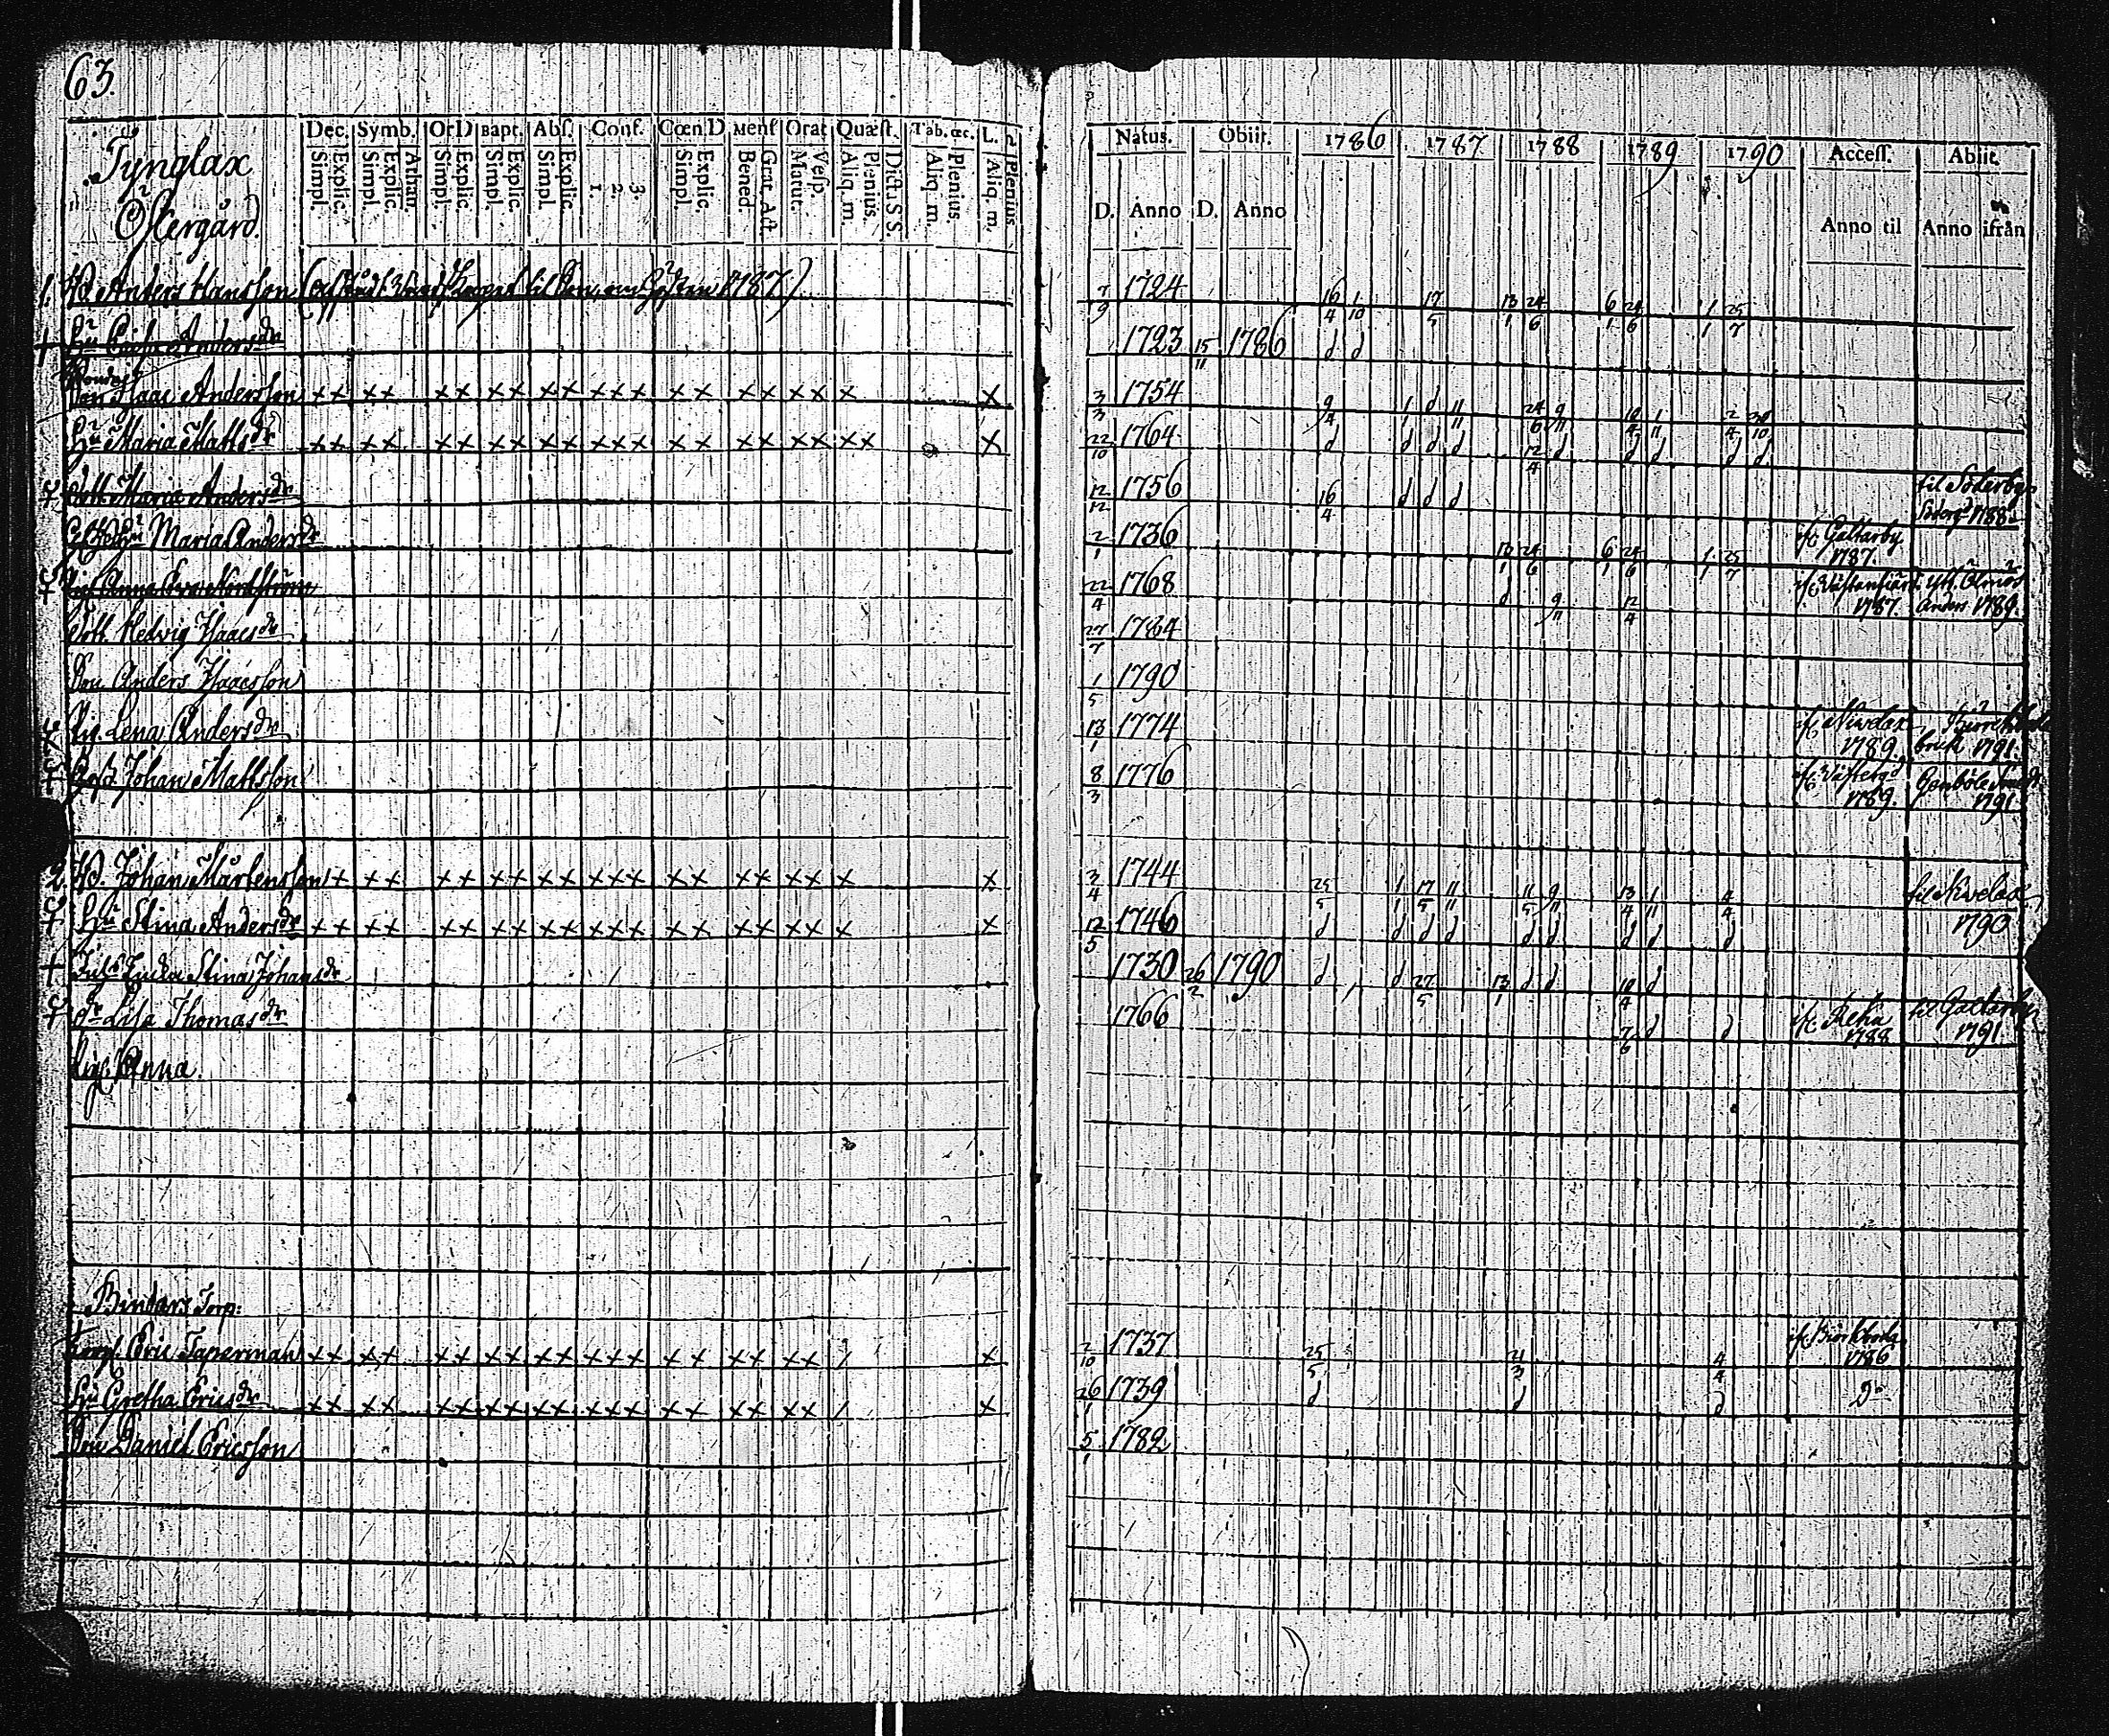 63.
Tynglax
Östergård.
Dec. Symb. Or D Bapt. Abs. Conf. Cœn. D Mens Orat Quæst. Tab. œc. L.
Simpl. Explic. Simpl. Explic. Athan. Simpl. Explic. Simpl. Explic. Simpl. Explic. 1. 2. 3. Simpl. Explic. Bened. Grat. Act Matut. Vesp. Aliq. m. Plenius. Dicta S S. Aliq. m. Plenius. Aliq. m. Plenius
Natus. Obiit. 1786 1787 1788 1789 1790 Access. Abiit.
D. Anno D. Anno Anno til Anno ifrån
1. Anders Hansson til Son 1787) 7/9 1724 16/4 1/10 17/5 13/1 24/6 6/1 24/6 1/1 25/7
Hu Anders dr 1723 15/11 1786 d d
Son Isaac Andersson ×× ×× ×× ×× ×× ××× ×× ×× ×× × × 3/3 1754 9/4 1 d 11/11 24/6 9/11 10/4 1/11 2/4 30/10
Hu Maria Matts dr ×× ×× ×× ×× ×× ××× ×× ×× ×× ×× × 22/10 1764 d d d d 12/4 d d d d d
Dott Maria Anders dr 12/12 1756 16/4 d d d til Söderby
1788
Maria Anders dr 2/1 1736 13/1 24/6 6/1 24/6 1/1 25/7 if Galtarby
1787.
Anna 22/4 1768 d 9/11 12/4 if Västanfiärd
1787 1789.
Dott Hedvig Isaacs dr 27/7 1784
Son Anders Isaacsson 1/5 1790
Pig. Lena Anders dr 13/1 1774 if Nivelax
1789 bruk 1791.
Johan Mattsson 8/3 1776 if Västergd
1789. Genböle
1791
2. Johan Mårtensson ×× ×× ×× ×× ×× ××× ×× ×× ×× × × 3/4 1744 25/5 1/1 17/5 11/11 11/5 9/11 13/4 1/11 4/4 til Nivelax
Hu Stina Anders dr ×× ×× ×× ×× ×× ××× ×× ×× ×× × × 12/5 1746 d d d d d d d d d 1790
Stina Johans dr 1730 26/2 1790 d d 27/5 13/1 d d 10/4 d
dr Lisa Thomas dr 1766 7/6 d d if Reka
1788 til Galtarby
1791
Pig. Anna.
Torp:
Eric Taperman ×× ×× ×× ×× ×× ××× ×× ×× ×× / × 2/10 1737 25/5 21/3 4/4 if Biörkboda
1786
Hu Gretha Erics dr ×× ×× ×× ×× ×× ××× ×× ×× ×× / × 26/1 1739 d d d Do
Son Daniel Ericsson 5/1 1782